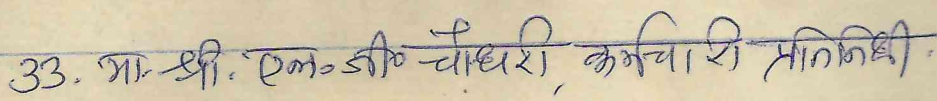 33. मा. श्री. एन० जी० चौधरी, कर्मचारी प्रतिनिधी.